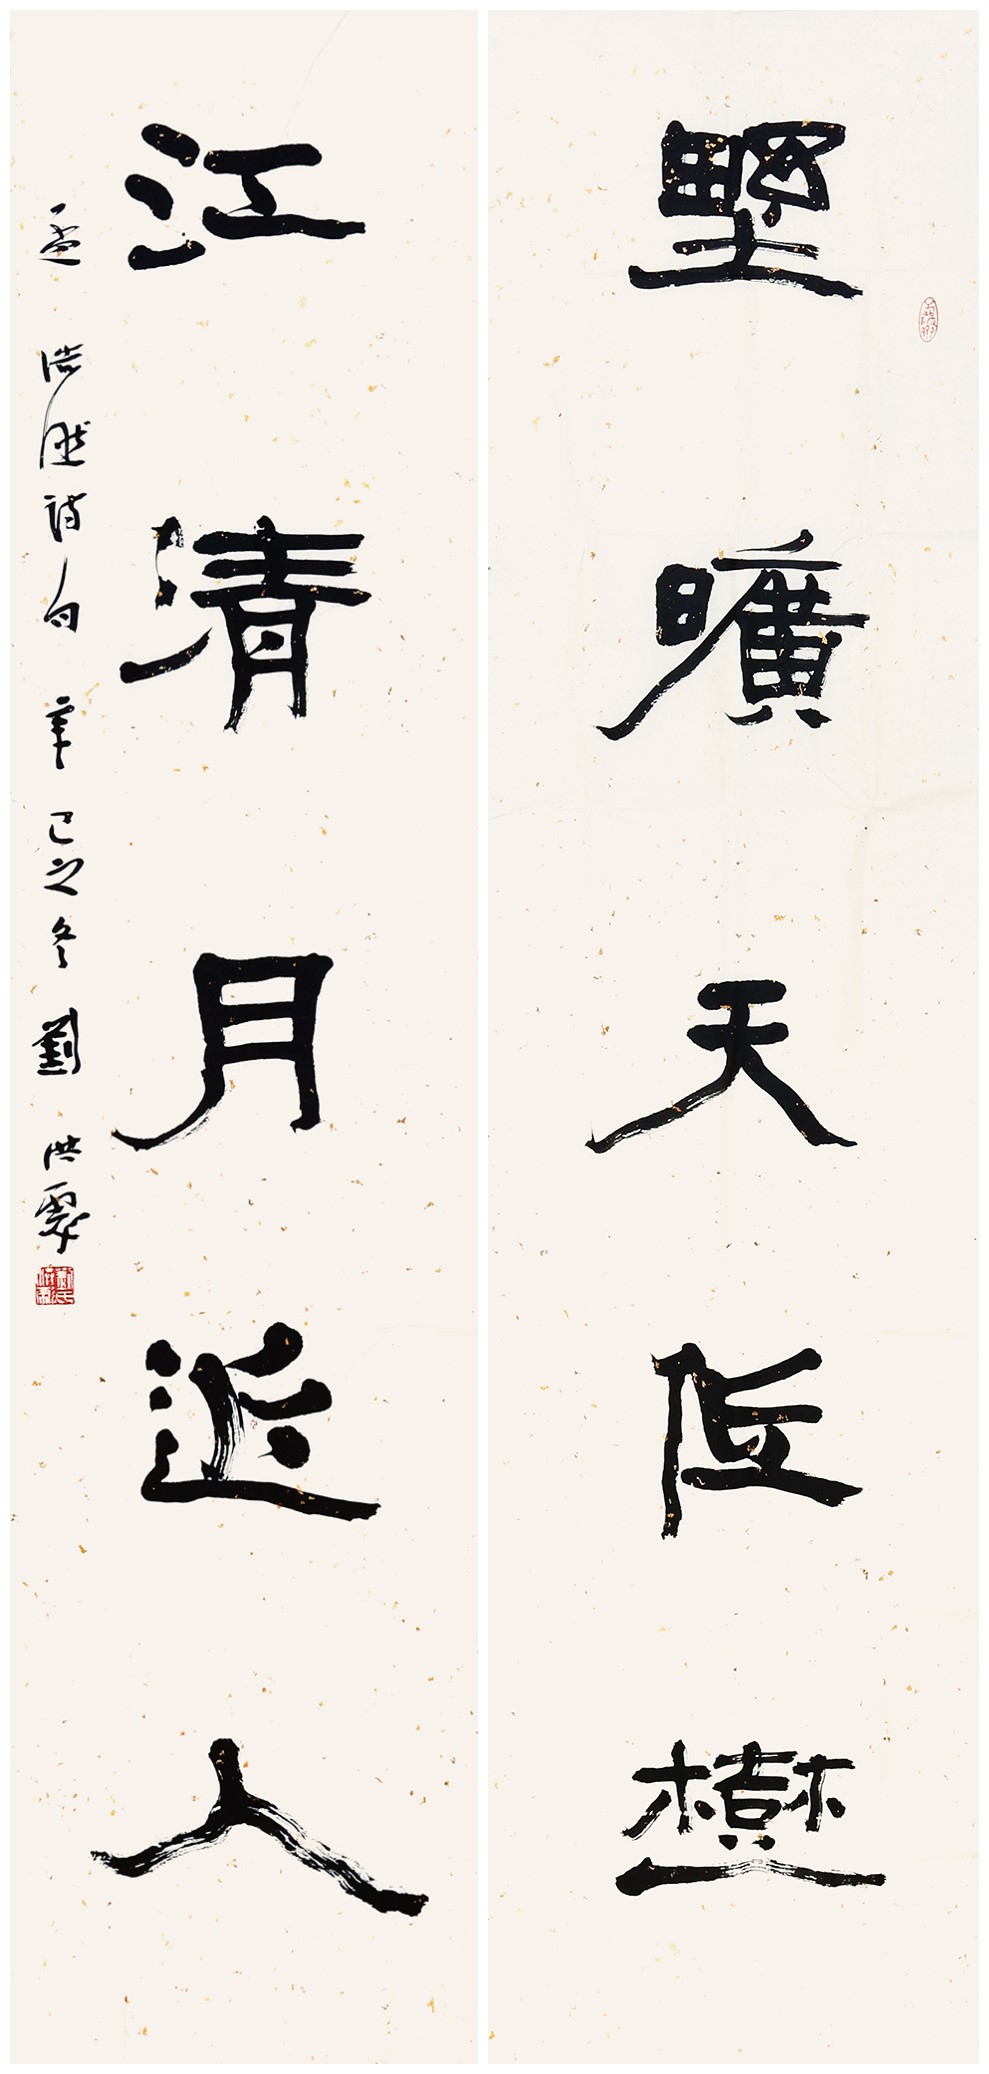 野曠天低樹
江清月近人
孟浩然詩句辛巳之冬劉洪彪